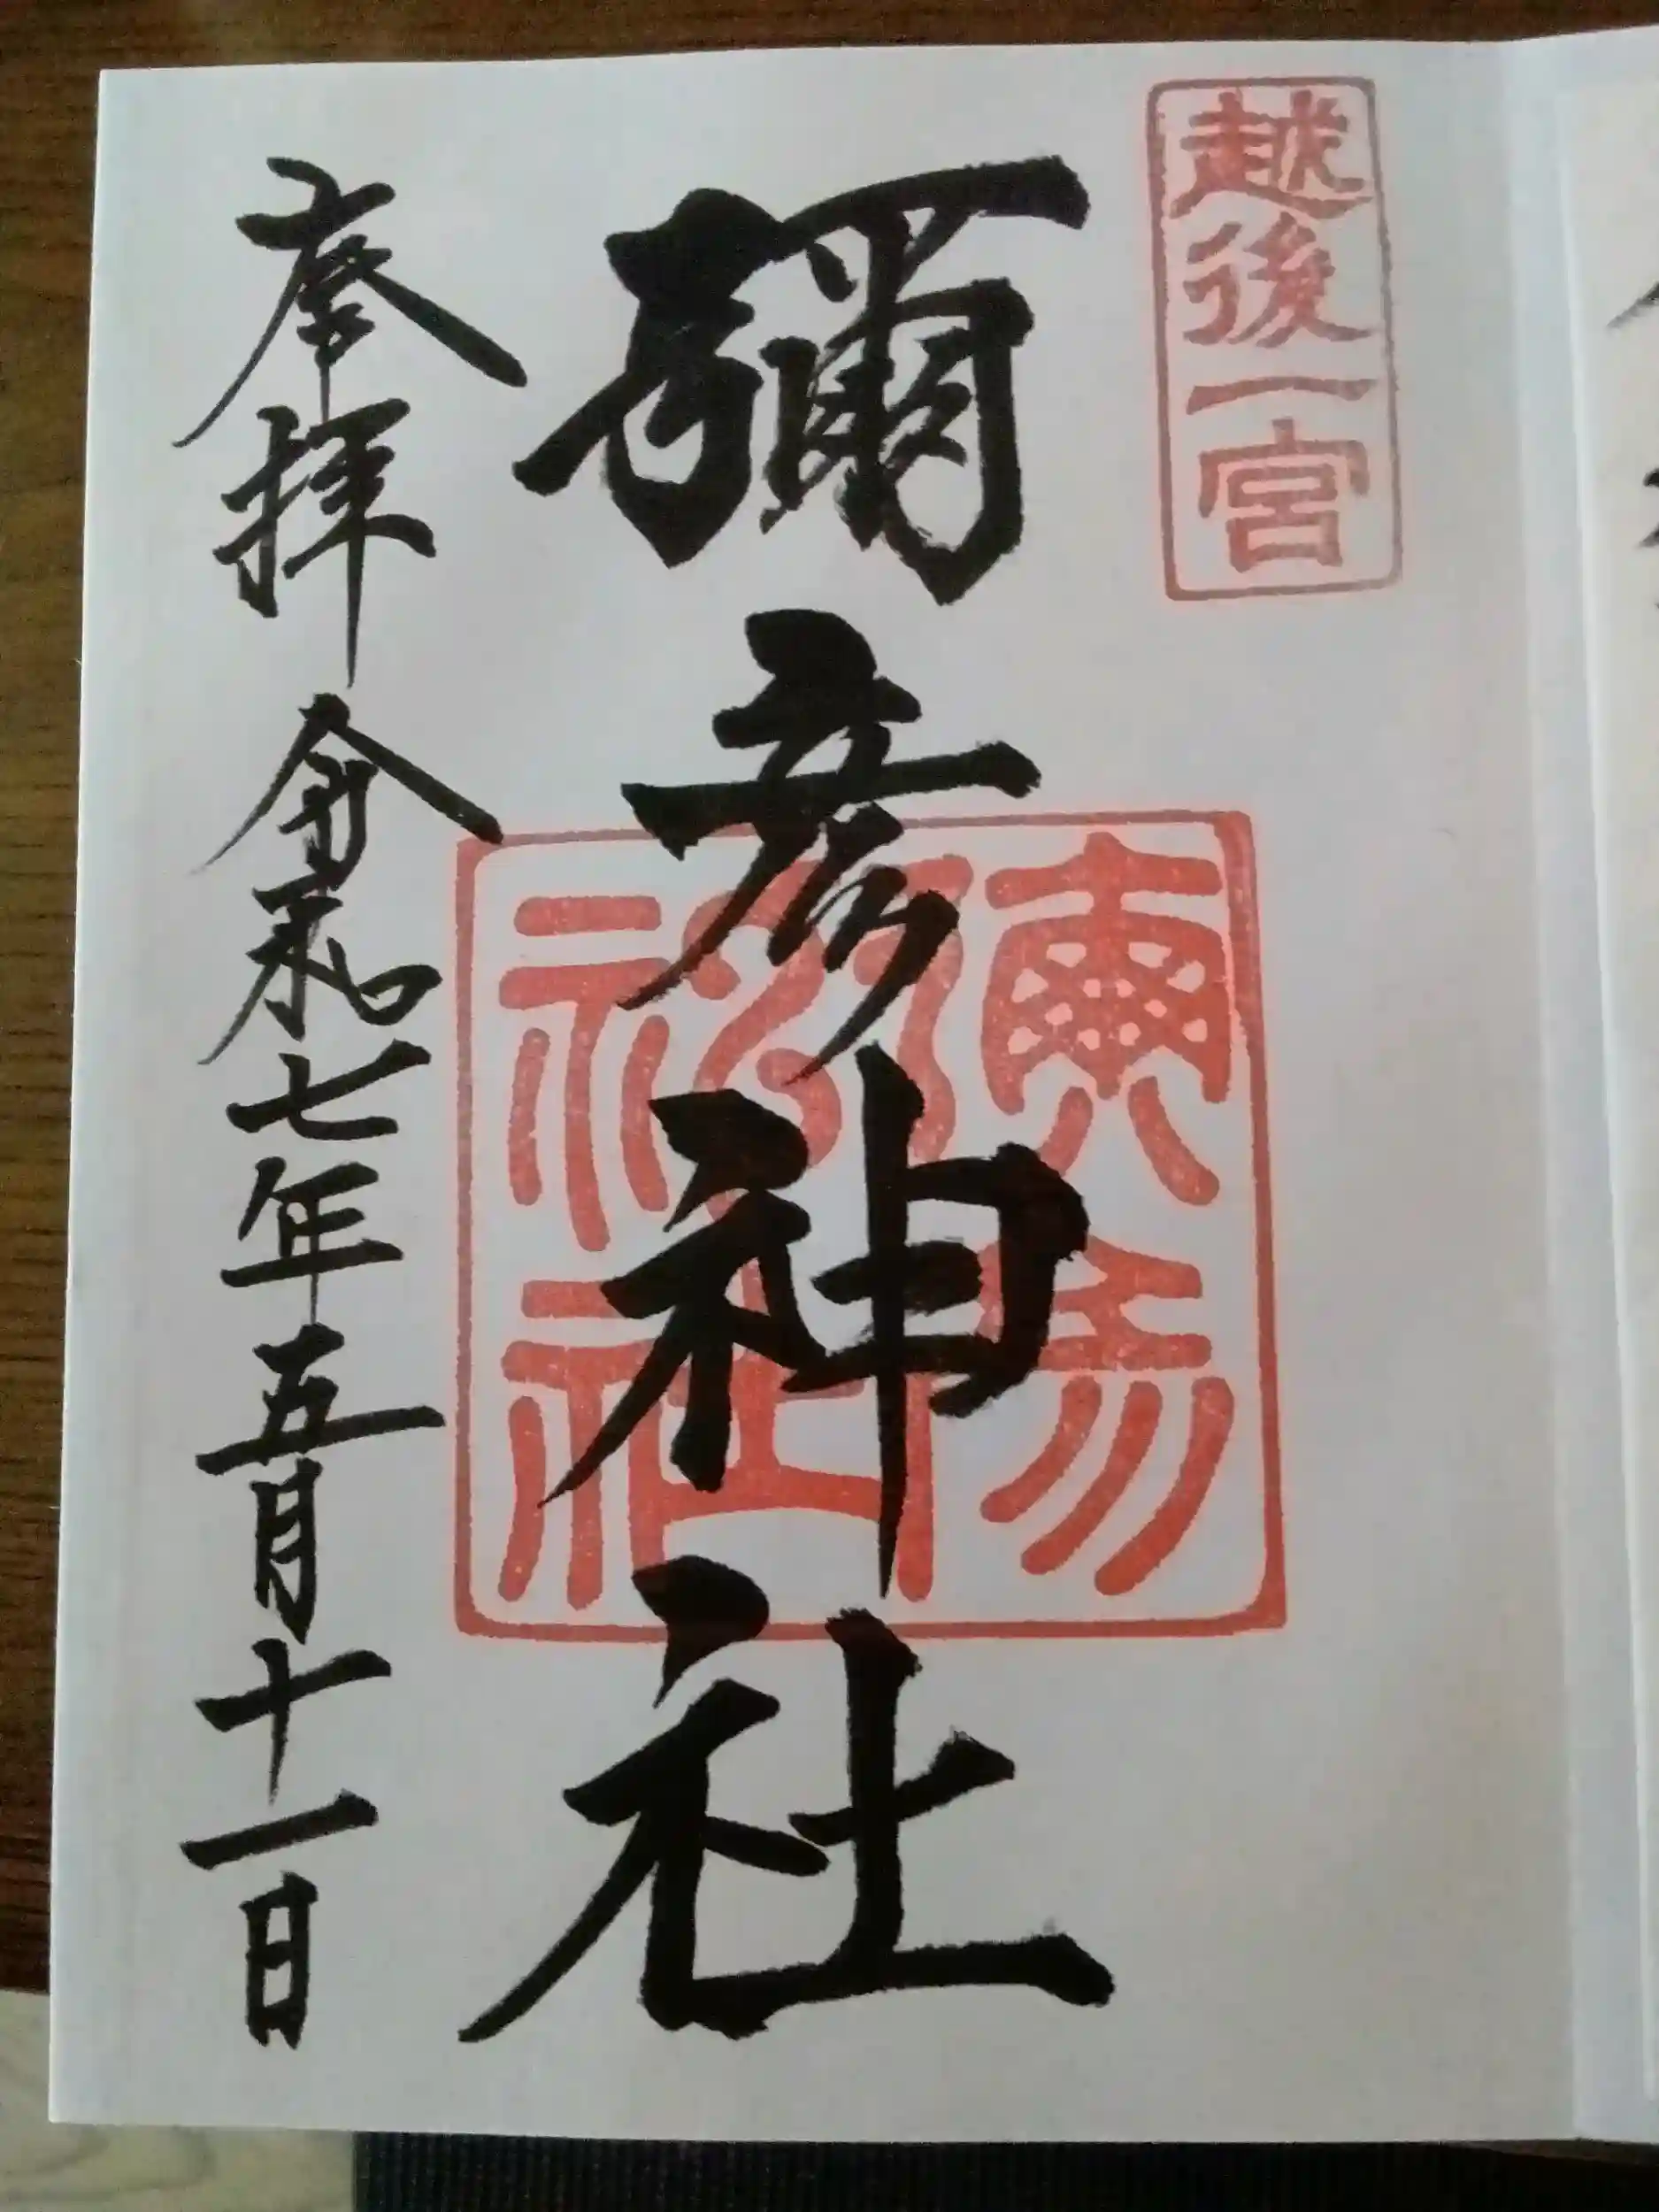 越後一宮
彌彦神社
彌彦神社
奉拝 令和七年五月十一日